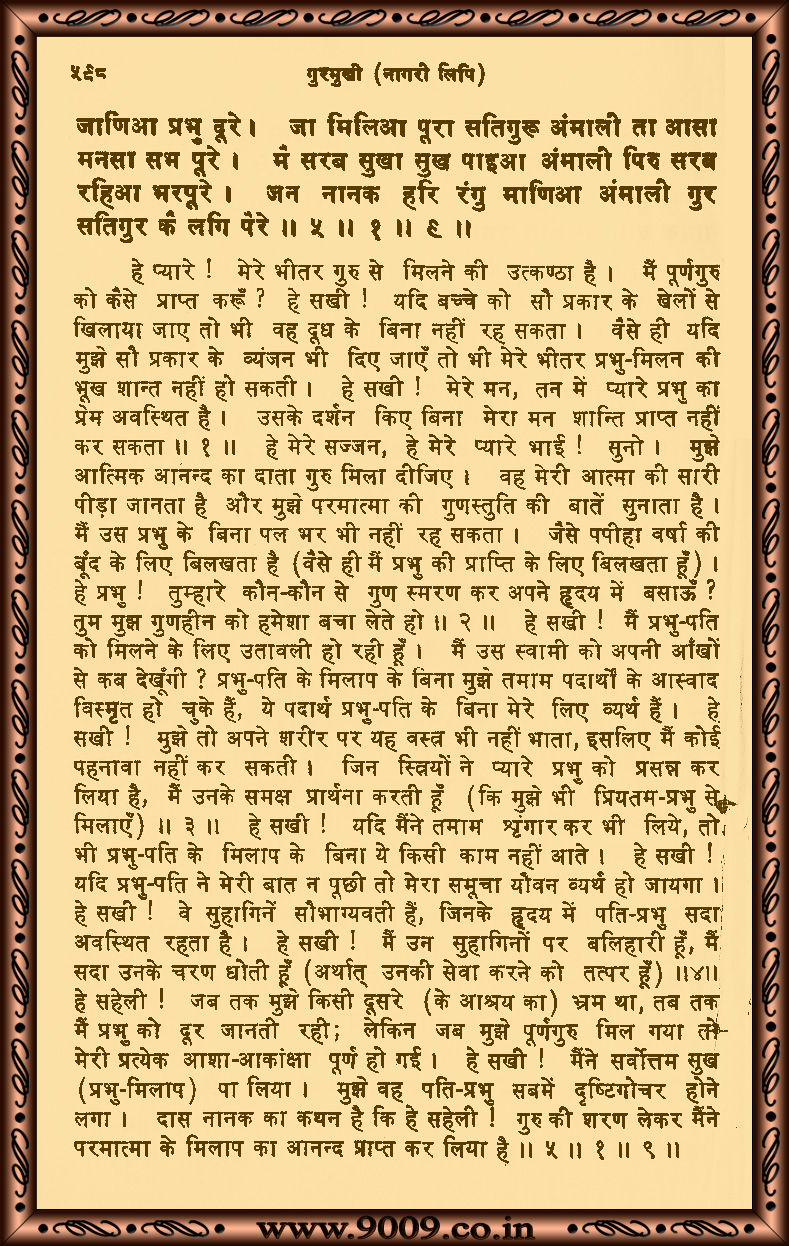 ५९८ गुरमुखी (नागरी लिपि)
जाणिआ प्रभु दूरे। जा मिलिआ पूरा सतिगुरू अंमाली ता आसा
मनसा सभ पूरे। मै सरब सुखा सुख पाइआ अंमाली पिरु सरब
रहिआ भरपूरे। जन नानक हरि रंगु माणिआ अंमाली गुर
सतिगुर कै लगि पैरे॥ ५॥ १॥ ९॥
हे प्यारे! मेरे भीतर गुरु से मिलने की उत्कण्ठा है। मैं पूर्णगुरु
को कैसे प्राप्त करूँ? हे सखी! यदि बच्चे को सौ प्रकार के खेलों से
खिलाया जाए तो भी वह दूध के बिना नहीं रह सकता। वैसे ही यदि
मुझे सौ प्रकार के व्यंजन भी दिए जाएँ तो भी मेरे भीतर प्रभु-मिलन की
भूख शान्त नहीं हो सकती। हे सखी! मेरे मन, तन में प्यारे प्रभु का
प्रेम अवस्थित है। उसके दर्शन किए बिना मेरा मन शान्ति प्राप्त नहीं
कर सकता॥ १॥ हे मेरे सज्जन, हे मेरे प्यारे भाई! सुनो। मुझे
आत्मिक आनन्द का दाता गुरु मिला दीजिए। वह मेरी आत्मा की सारी
पीड़ा जानता है और मुझे परमात्मा की गुणस्तुति की बातें सुनाता है।
मैं उस प्रभु के बिना पल भर भी नहीं रह सकता। जैसे पपीहा वर्षा की
बूँद के लिए बिलखता है (वैसे ही मैं प्रभु की प्राप्ति के लिए बिलखता हूँ)।
हे प्रभु! तुम्हारे कौन-कौन से गुण स्मरण कर अपने हृदय में बसाऊँ?
तुम मुझ गुणहीन को हमेशा बचा लेते हो॥ २॥ हे सखी! मैं प्रभु-पति
को मिलने के लिए उतावली हो रही हूँ। मैं उस स्वामी को अपनी आँखों
से कब देखूँगी? प्रभु-पति के मिलाप के बिना मुझे तमाम पदार्थों के आस्वाद
विस्मृत हो चुके हैं, ये पदार्थ प्रभु-पति के बिना मेरे लिए व्यर्थ हैं। हे
सखी! मुझे तो अपने शरीर पर यह वस्त्र भी नहीं भाता, इसलिए मैं कोई
पहनावा नहीं कर सकती। जिन स्त्रियों ने प्यारे प्रभु को प्रसन्न कर
लिया है, मैं उनके समक्ष प्रार्थना करती हूँ (कि मुझे भी प्रियतम-प्रभु से
मिलाएँ)॥ ३॥ हे सखी! यदि मैंने तमाम शृंगार कर भी लिये, तो
भी प्रभु-पति के मिलाप के बिना ये किसी काम नहीं आते। हे सखी!
यदि प्रभु-पति ने मेरी बात न पूछी तो मेरा समूचा यौवन व्यर्थ हो जायगा।
हे सखी! वे सुहागिनें सौभाग्यवती हैं, जिनके हृदय में पति-प्रभु सदा
अवस्थित रहता है। हे सखी! मैं उन सुहागिनों पर बलिहारी हूँ, मैं
सदा उनके चरण धोती हूँ (अर्थात् उनकी सेवा करने को तत्पर हूँ)॥४॥
हे सहेली! जब तक मुझे किसी दूसरे (के आश्रय का) भ्रम था, तब तक
मैं प्रभु को दूर जानती रही; लेकिन जब मुझे पूर्णगुरु मिल गया तो
मेरी प्रत्येक आशा-आकांक्षा पूर्ण हो गई। हे सखी! मैंने सर्वोत्तम सुख
(प्रभु-मिलाप) पा लिया। मुझे वह पति-प्रभु सबमें दृष्टिगोचर होने
लगा। दास नानक का कथन है कि हे सहेली! गुरु की शरण लेकर मैंने
परमात्मा के मिलाप का आनन्द प्राप्त कर लिया है॥ ५॥ १॥ ९॥
www.9009.co.in